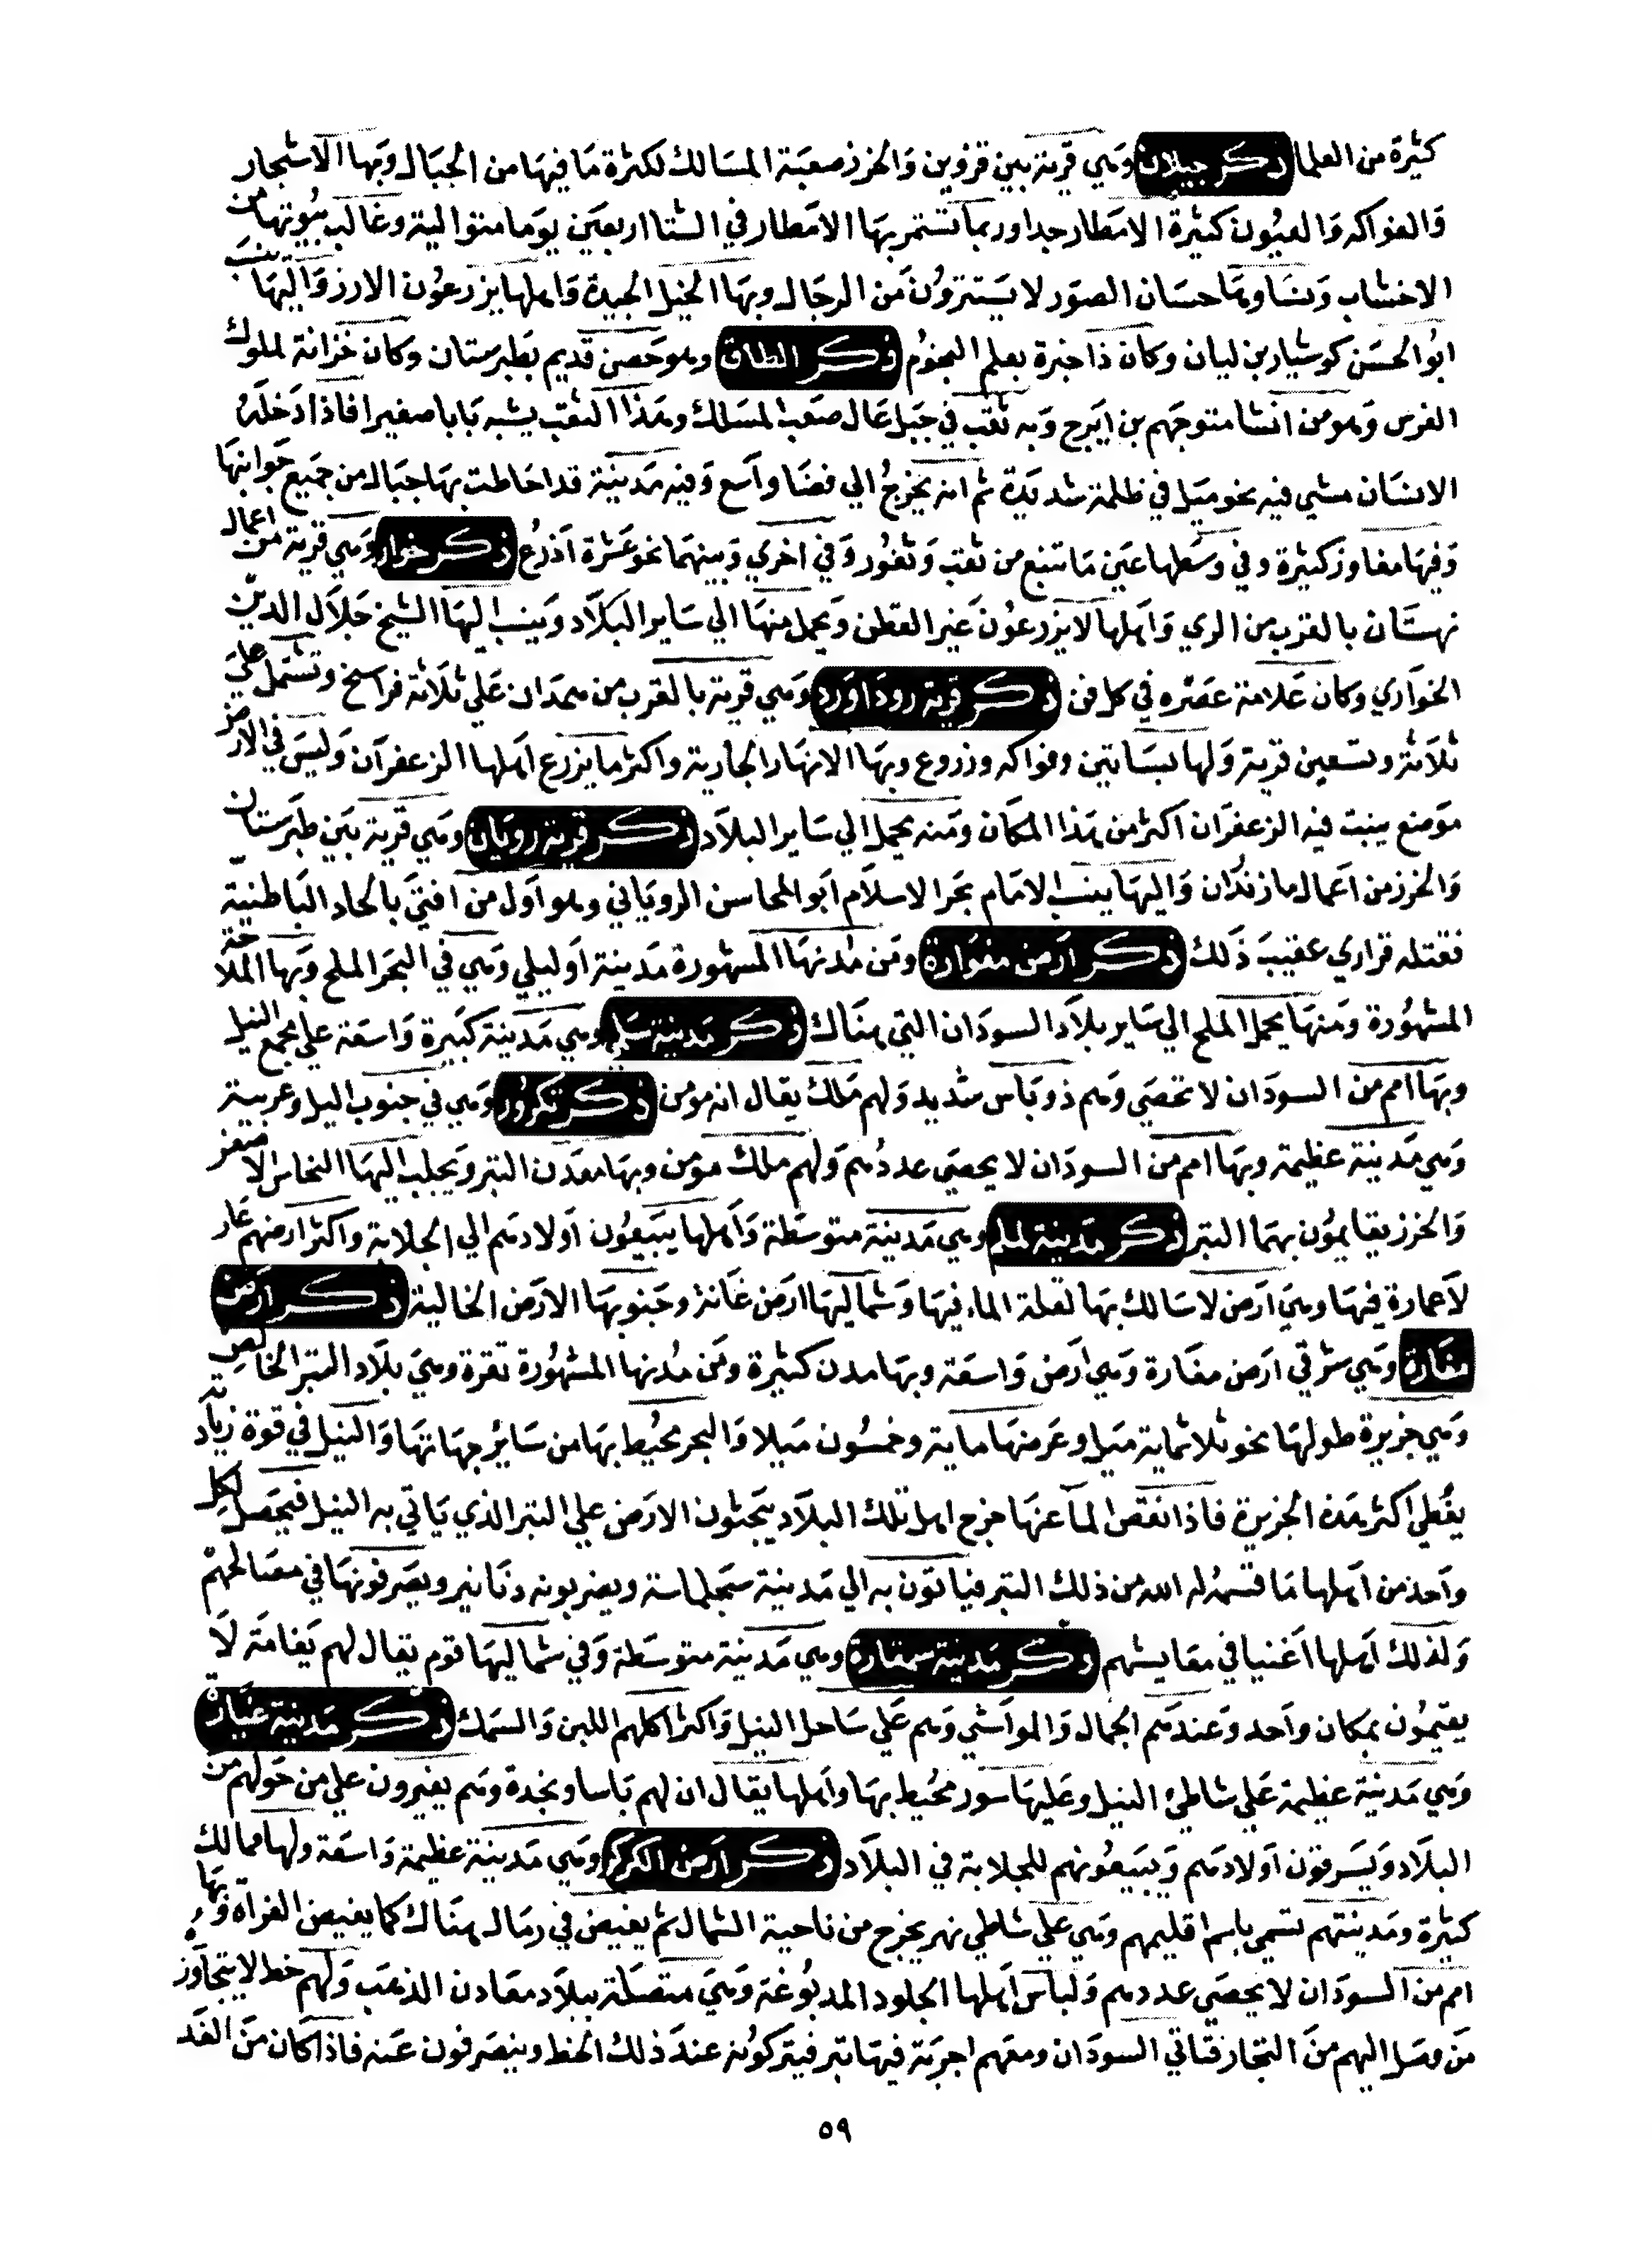 كثيرة من العلما ذكر جيلان وهي قرية بين قزوين والخزر صعبة المسالك لكثرة ما فيها من الجبال وبها الاشجار
والفواكه والعيون كثيرة الامطار جدا وربما تستمر بها الامطار في الشتا اربعين يوما متوالية وغالب بيوتها من
الاخشاب ونساوها حسان الصور لا يستترون من الرجال وبها الخيل الجيدة واهلها يزرعون الارز واليها ينسب
ابو الحسن كوشيار بن لبان وكان ذا خبرة بعلم النجوم ذكر الطاق وهو حصن قديم بطبرستان وكان خزانة لملوك
الفرس وهو من انشا منوجهم بن ايرج وبه ثقب في جبل عال صعب المسلك وهذا الثقب يشبه بابا صغيرا فاذا دخله
الانسان مشي فيه نحو ميل في ظلمة شديدة ثم انه يخرج الي فضا واسع وفيه مدينة قد احاطت بها جبال من جميع جوانبها
وفيها مغاوز كثيرة وفي وسطها عين ما تنبع من ثقب وتغور وفي اخري وبينهما نحو عشرة اذرع ذكر خوار وهي قرية من اعمال
نهستان بالقرب من الري واهلها لا يزرعون غير القطن ويحمل منها الي ساير البلاد وينسب اليها الشيخ جلال الدين
الخواري وكان علامة عصره في كل فن ذكر قرية روداورد وهي قرية بالقرب من همدان علي ثلاثة فراسخ وتشتمل علي
ثلاثة وتسعين قرية ولها بساتين وفواكه وزروع وبها الانهار الجارية واكثر ما يزرع اهلها الزعفران وليس في الارض
موضع ينبت فيه الزعفران اكثر من هذا المكان ومنه يحمل الي ساير البلاد ذكر قرية رويان وهي قرية بين طبرستان
والخزر من اعمال مازندران واليها ينسب الامام بحر الاسلام ابو المحاسن الروياني وهو اول من افتي بالحاد الباطنية
فقتله قراري عقيب ذلك ذكر ارض مغوارة ومن مدنها المشهورة مدينة اوليلي وهي في البحر الملح وبها الملاحة
المشهورة ومنها يحمل الملح الي ساير بلاد السودان التي هناك ذكر مدينة سلي وهي مدينة كبيرة واسعة علي مجمع النيل
وبها امم من السودان لا تحصي وهم ذو باس شديد ولهم ملك يقال انه مومن ذكر تكرور وهي في جنوب النيل وعربيته
وهي مدينة عظيمة وبها امم من السودان لا يحصي عددهم ولهم ملك مومن وبها معدن التبر ويجلب اليها النحاس الاصفر
والخرز يقايمون بهما التبر ذكر مدينة لملم وهي مدينة متوسطة واهلها يبيعون اولادهم الي الجلابة واكثر ارضهم عار
لا عمارة فيها وهي ارض لا سالك بها لقلة الماء فيها وشماليها ارض غانة وجنوبها الارض الخالية ذكر ارض
نقارة وهي شرقي ارض مغارة وهي ارض واسعة وبها مدن كثيرة ومن مدنها المشهورة تقرة وهي بلاد التبر الخالص
وهي جزيرة طولها نحو ثلاثماية ميل وعرضها ماية وخمسون ميلا والبحر محيط بها من سائر جهاتها والنيل في قوة زيادته
يغطي اكثر هذه الجزيرة فاذا نقص الما عنها خرج اهل تلك البلاد يبحثون الارض علي التبر الذي ياتي به النيل فيحصل لكل
واحد من اهلها ما قسمه له الله من ذلك التبر فياتون به الي مدينة سجلماسة ويضربونه دنانير ويصرفونها في مصالحهم
ولذلك اهلها اغنيا في معايشهم ذكر مدينة سمقارة وهي مدينة متوسطة وفي شماليها قوم يقال لهم يغامة لا
يقيمون بمكان واحد وعندهم الجمال والمواشي وهم علي ساحل النيل واكثر اكلهم اللبن والسمك ذكر مدينة غيارة
وهي مدينة عظيمة علي شاطئ النيل وعليها سور محيط بها واهلها يقال ان لهم باسا ونجدة وهم يغيرون علي من حولهم من
البلاد ويسرقون اولادهم ويبيعونهم للجلابة في البلاد ذكر ارض الكركر وهي مدينة عظيمة واسعة ولها ممالك
كثيرة ومدينتهم تسمي باسم اقليمهم وهي علي شاطي نهر يخرج من ناحية الشمال ثم يغيض في رمال هناك كما يغيض الفراه وبها
امم من السودان لا يحصي عددهم ولباس اهلها الجلود المدبوغة وهي متصلة ببلاد معادن الذهب ولهم خط لا يتجاوزه
من وصل اليهم من التجار فتاتي السودان ومعهم اجربة فيها تبر فيتركونه عند ذلك الخط وينصرفون عنه فاذا كان من الغد
٥٩